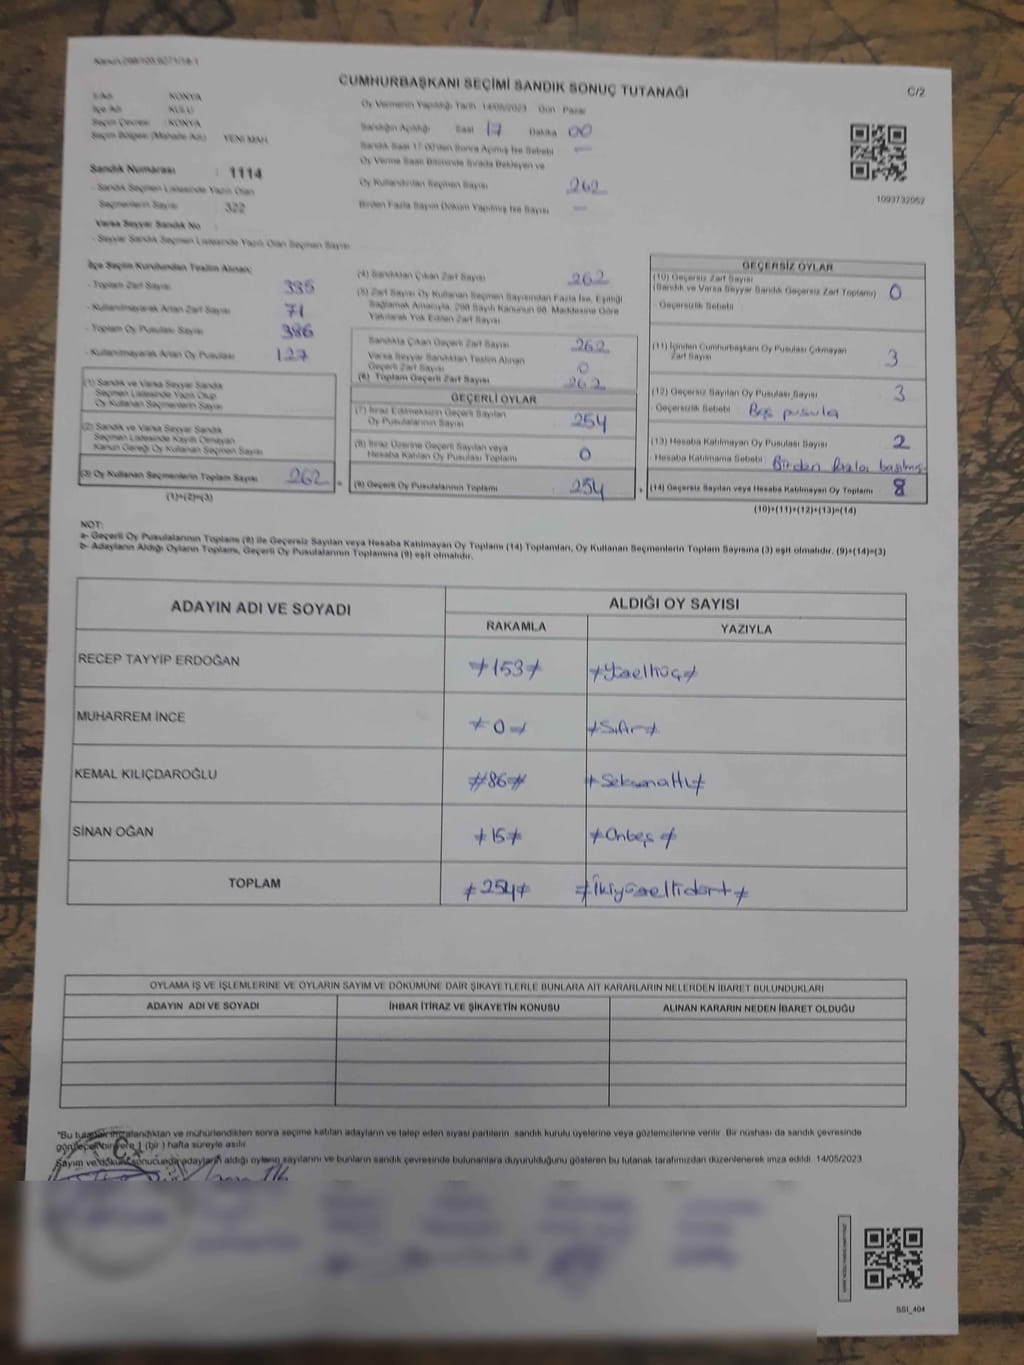 CUMHURBAŞKANI SEÇİMİ SANDIK SONUÇ TUTANAĞI
C/2
İl Adı : KONYA
İlçe Adı : KULU
Seçim Çevresi : KONYA
Seçim Bölgesi (Mahalle Adı) : YENİ MAH
Oy Vermenin Yapıldığı Tarih : 14/05/2023 Gün : Pazar
Sandığın Açıldığı Saat 17 Dakika 00
Sandık Saat 17:00'den Sonra Açılmış İse Sebebi —
Oy Verme Saati Bitiminde Sırada Bekleyen ve
Oy Kullandırılan Seçmen Sayısı 262
Birden Fazla Sayım Döküm Yapılmış İse Sayısı —
1093732052
Sandık Numarası : 1114
- Sandık Seçmen Listesinde Yazılı Olan
Seçmenlerin Sayısı : 322
Varsa Seyyar Sandık No :
- Seyyar Sandık Seçmen Listesinde Yazılı Olan Seçmen Sayısı
İlçe Seçim Kurulundan Teslim Alınan;
- Toplam Zarf Sayısı 335
- Kullanılmayarak Artan Zarf Sayısı 71
- Toplam Oy Pusulası Sayısı 386
- Kullanılmayarak Artan Oy Pusulası 127
(1) Sandık ve Varsa Seyyar Sandık
Seçmen Listesinde Yazılı Olup
Oy Kullanan Seçmenlerin Sayısı
(2) Sandık ve Varsa Seyyar Sandık
Seçmen Listesinde Kayıtlı Olmayan
Kanun Gereği Oy Kullanan Seçmen Sayısı
(3) Oy Kullanan Seçmenlerin Toplam Sayısı 262
(1)+(2)=(3)
(4) Sandıktan Çıkan Zarf Sayısı 262
(5) Zarf Sayısı Oy Kullanan Seçmen Sayısından Fazla İse, Eşitliği
Sağlamak Amacıyla, 298 Sayılı Kanunun 98. Maddesine Göre
Yakılarak Yok Edilen Zarf Sayısı
Sandıkta Çıkan Geçerli Zarf Sayısı 262
Varsa Seyyar Sandıktan Teslim Alınan
Geçerli Zarf Sayısı 0
(6) Toplam Geçerli Zarf Sayısı 262
GEÇERLİ OYLAR
(7) İtiraz Edilmeksizin Geçerli Sayılan
Oy Pusulalarının Sayısı 254
(8) İtiraz Üzerine Geçerli Sayılan veya
Hesaba Katılan Oy Pusulası Toplamı 0
(9) Geçerli Oy Pusulalarının Toplamı 254
GEÇERSİZ OYLAR
(10) Geçersiz Zarf Sayısı
(Sandık ve Varsa Seyyar Sandık Geçersiz Zarf Toplamı) 0
Geçersizlik Sebebi
(11) İçinden Cumhurbaşkanı Oy Pusulası Çıkmayan
Zarf Sayısı 3
(12) Geçersiz Sayılan Oy Pusulası Sayısı 3
Geçersizlik Sebebi : Boş pusula
(13) Hesaba Katılmayan Oy Pusulası Sayısı 2
Hesaba Katılmama Sebebi : Birden fazla basılmış
(14) Geçersiz Sayılan veya Hesaba Katılmayan Oy Toplamı 8
(10)+(11)+(12)+(13)=(14)
NOT:
a- Geçerli Oy Pusulalarının Toplamı (9) ile Geçersiz Sayılan veya Hesaba Katılmayan Oy Toplamı (14) Toplamları, Oy Kullanan Seçmenlerin Toplam Sayısına (3) eşit olmalıdır. (9)+(14)=(3)
b- Adayların Aldığı Oyların Toplamı, Geçerli Oy Pusulalarının Toplamına (9) eşit olmalıdır.
ADAYIN ADI VE SOYADI
ALDIĞI OY SAYISI
RAKAMLA YAZIYLA
RECEP TAYYİP ERDOĞAN ≠153≠ ≠Yüzelliüç≠
MUHARREM İNCE ≠0≠ ≠Sıfır≠
KEMAL KILIÇDAROĞLU #86# ≠Seksenaltı≠
SİNAN OĞAN ≠15≠ ≠Onbeş≠
TOPLAM ≠254≠ ≠İkiyüzellidört≠
OYLAMA İŞ VE İŞLEMLERİNE VE OYLARIN SAYIM VE DÖKÜMÜNE DAİR ŞİKAYETLERLE BUNLARA AİT KARARLARIN NELERDEN İBARET BULUNDUKLARI
ADAYIN ADI VE SOYADI İHBAR İTİRAZ VE ŞİKAYETİN KONUSU ALINAN KARARIN NEDEN İBARET OLDUĞU
"Bu tutanak imzalandıktan ve mühürlendikten sonra seçime katılan adayların ve talep eden siyasi partilerin sandık kurulu üyelerine veya gözlemcilerine verilir. Bir nüshası da sandık çevresinde
görülecek bir yere 1 (bir) hafta süreyle asılır.
Sayım ve döküm sonucunda adayların aldığı oyların sayılarını ve bunların sandık çevresinde bulunanlara duyurulduğunu gösteren bu tutanak tarafımızdan düzenlenerek imza edildi. 14/05/2023
SSI_404